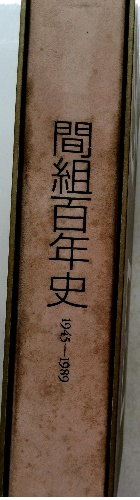 間組百年史
1945—1989